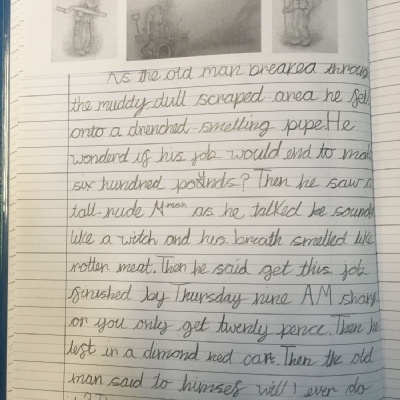 As the old man breaked throug
the muddy dull scraped area he fell
onto a drenched smelling pipe. He
wonderd if his job would end to mak
six hundred pounds? Then he saw a
tall rude man as he talked he sound
like a witch and his breath smelled like
rotten meat. Then he said get this job
finished by Thursday nine AM sharp
or you only get twendy pence. Then he
left in a dimond red car. Then the old
man said to himself will I ever do